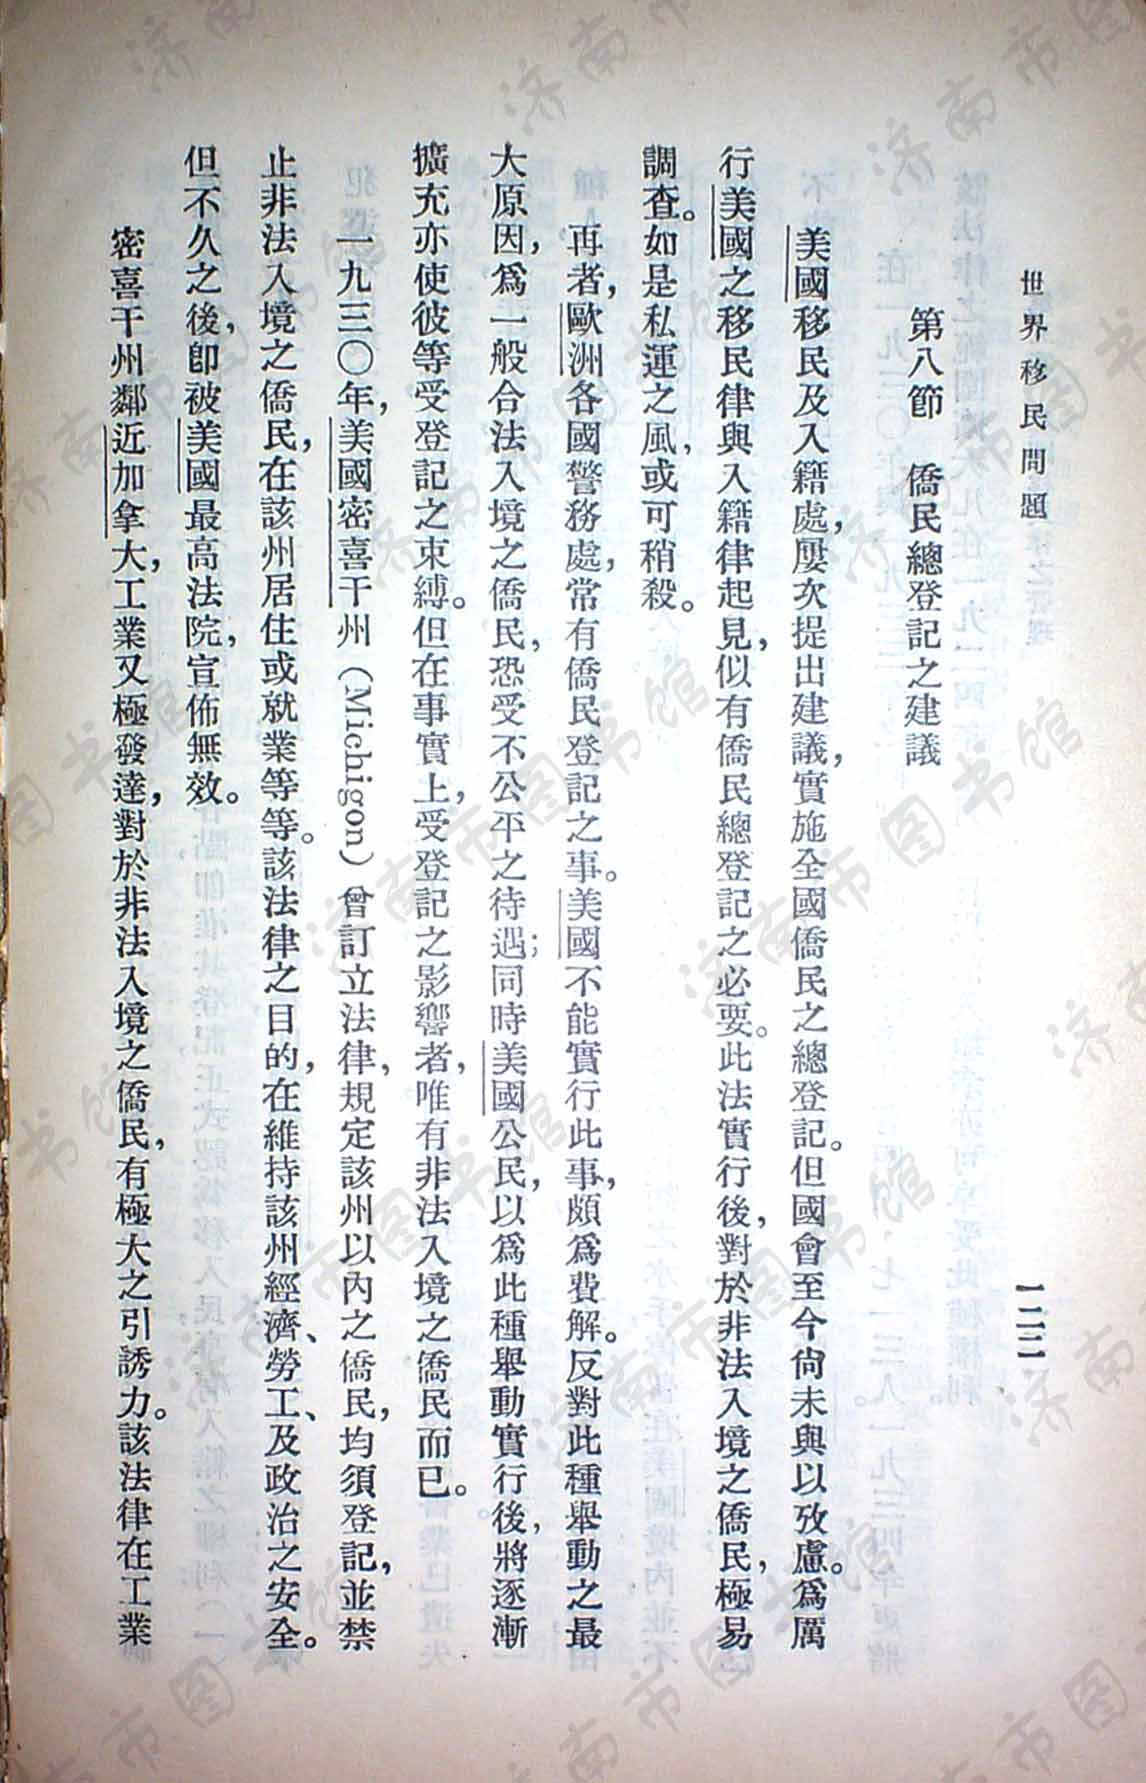 世界移民問題
一二二
第八節　僑民總登記之建議
美國移民及入籍處，屢次提出建議，實施全國僑民之總登記。但國會至今尙未與以攷慮。爲厲
行美國之移民律與入籍律起見，似有僑民總登記之必要。此法實行後，對於非法入境之僑民，極易
調查。如是私運之風，或可稍殺。
再者，歐洲各國警務處，常有僑民登記之事。美國不能實行此事，頗爲費解。反對此種舉動之最
大原因，爲一般合法入境之僑民，恐受不公平之待遇；同時美國公民，以爲此種舉動實行後，將逐漸
擴充亦使彼等受登記之束縛。但在事實上，受登記之影響者，唯有非法入境之僑民而已。
一九三〇年，美國密喜干州（Michigon）曾訂立法律，規定該州以內之僑民，均須登記，並禁
止非法入境之僑民，在該州居住或就業等等。該法律之目的，在維持該州經濟、勞工、及政治之安全。
但不久之後，卽被美國最高法院，宣佈無效。
密喜干州鄰近加拿大，工業又極發達，對於非法入境之僑民，有極大之引誘力。該法律在工業
济南市图书馆